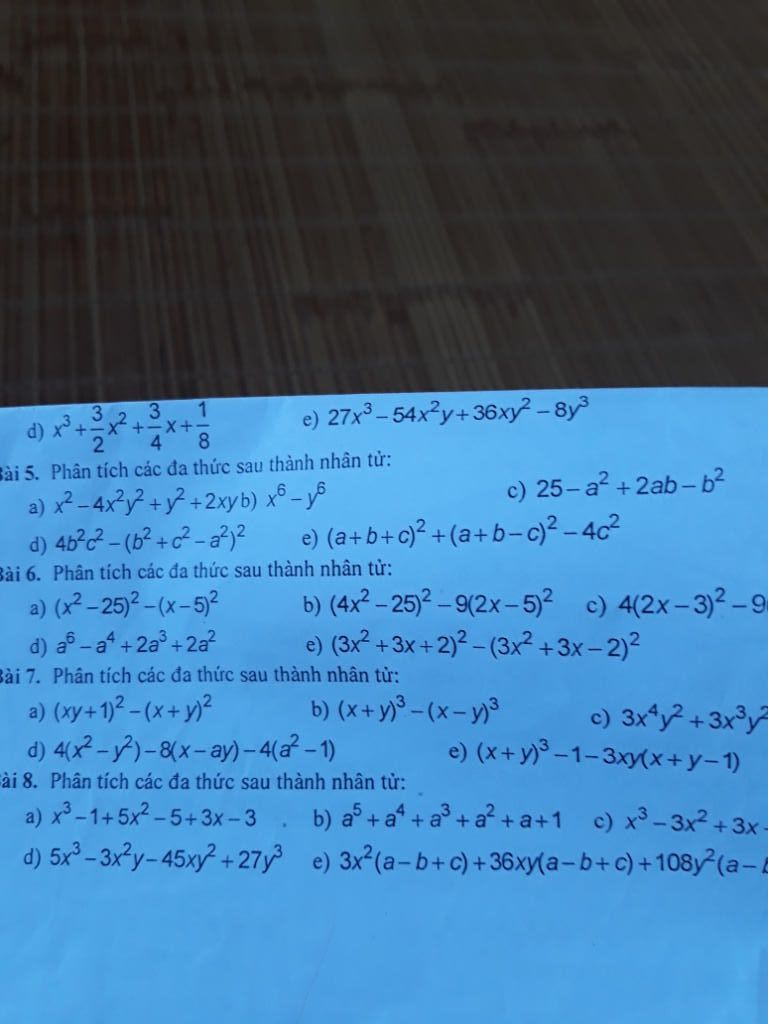 d) x³ + 3/2 x² + 3/4 x + 1/8 e) 27x³ − 54x²y + 36xy² − 8y³
Bài 5. Phân tích các đa thức sau thành nhân tử:
a) x² − 4x²y² + y² + 2xy b) x⁶ − y⁶ c) 25 − a² + 2ab − b²
d) 4b²c² − (b² + c² − a²)² e) (a + b + c)² + (a + b − c)² − 4c²
Bài 6. Phân tích các đa thức sau thành nhân tử:
a) (x² − 25)² − (x − 5)² b) (4x² − 25)² − 9(2x − 5)² c) 4(2x − 3)² − 9
d) a⁶ − a⁴ + 2a³ + 2a² e) (3x² + 3x + 2)² − (3x² + 3x − 2)²
Bài 7. Phân tích các đa thức sau thành nhân tử:
a) (xy + 1)² − (x + y)² b) (x + y)³ − (x − y)³ c) 3x⁴y² + 3x³y²
d) 4(x² − y²) − 8(x − ay) − 4(a² − 1) e) (x + y)³ − 1 − 3xy(x + y − 1)
Bài 8. Phân tích các đa thức sau thành nhân tử:
a) x³ − 1 + 5x² − 5 + 3x − 3 b) a⁵ + a⁴ + a³ + a² + a + 1 c) x³ − 3x² + 3x −
d) 5x³ − 3x²y − 45xy² + 27y³ e) 3x²(a − b + c) + 36xy(a − b + c) + 108y²(a −